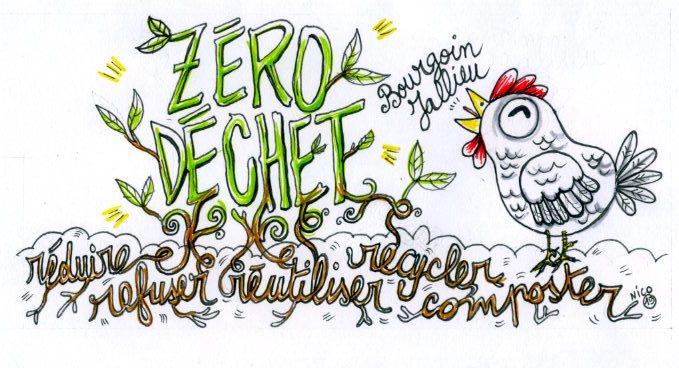 ZÉRO
DÉCHET
Bourgoin
Jallieu
réduire
refuser
réutiliser
recycler
composter
NICO
15